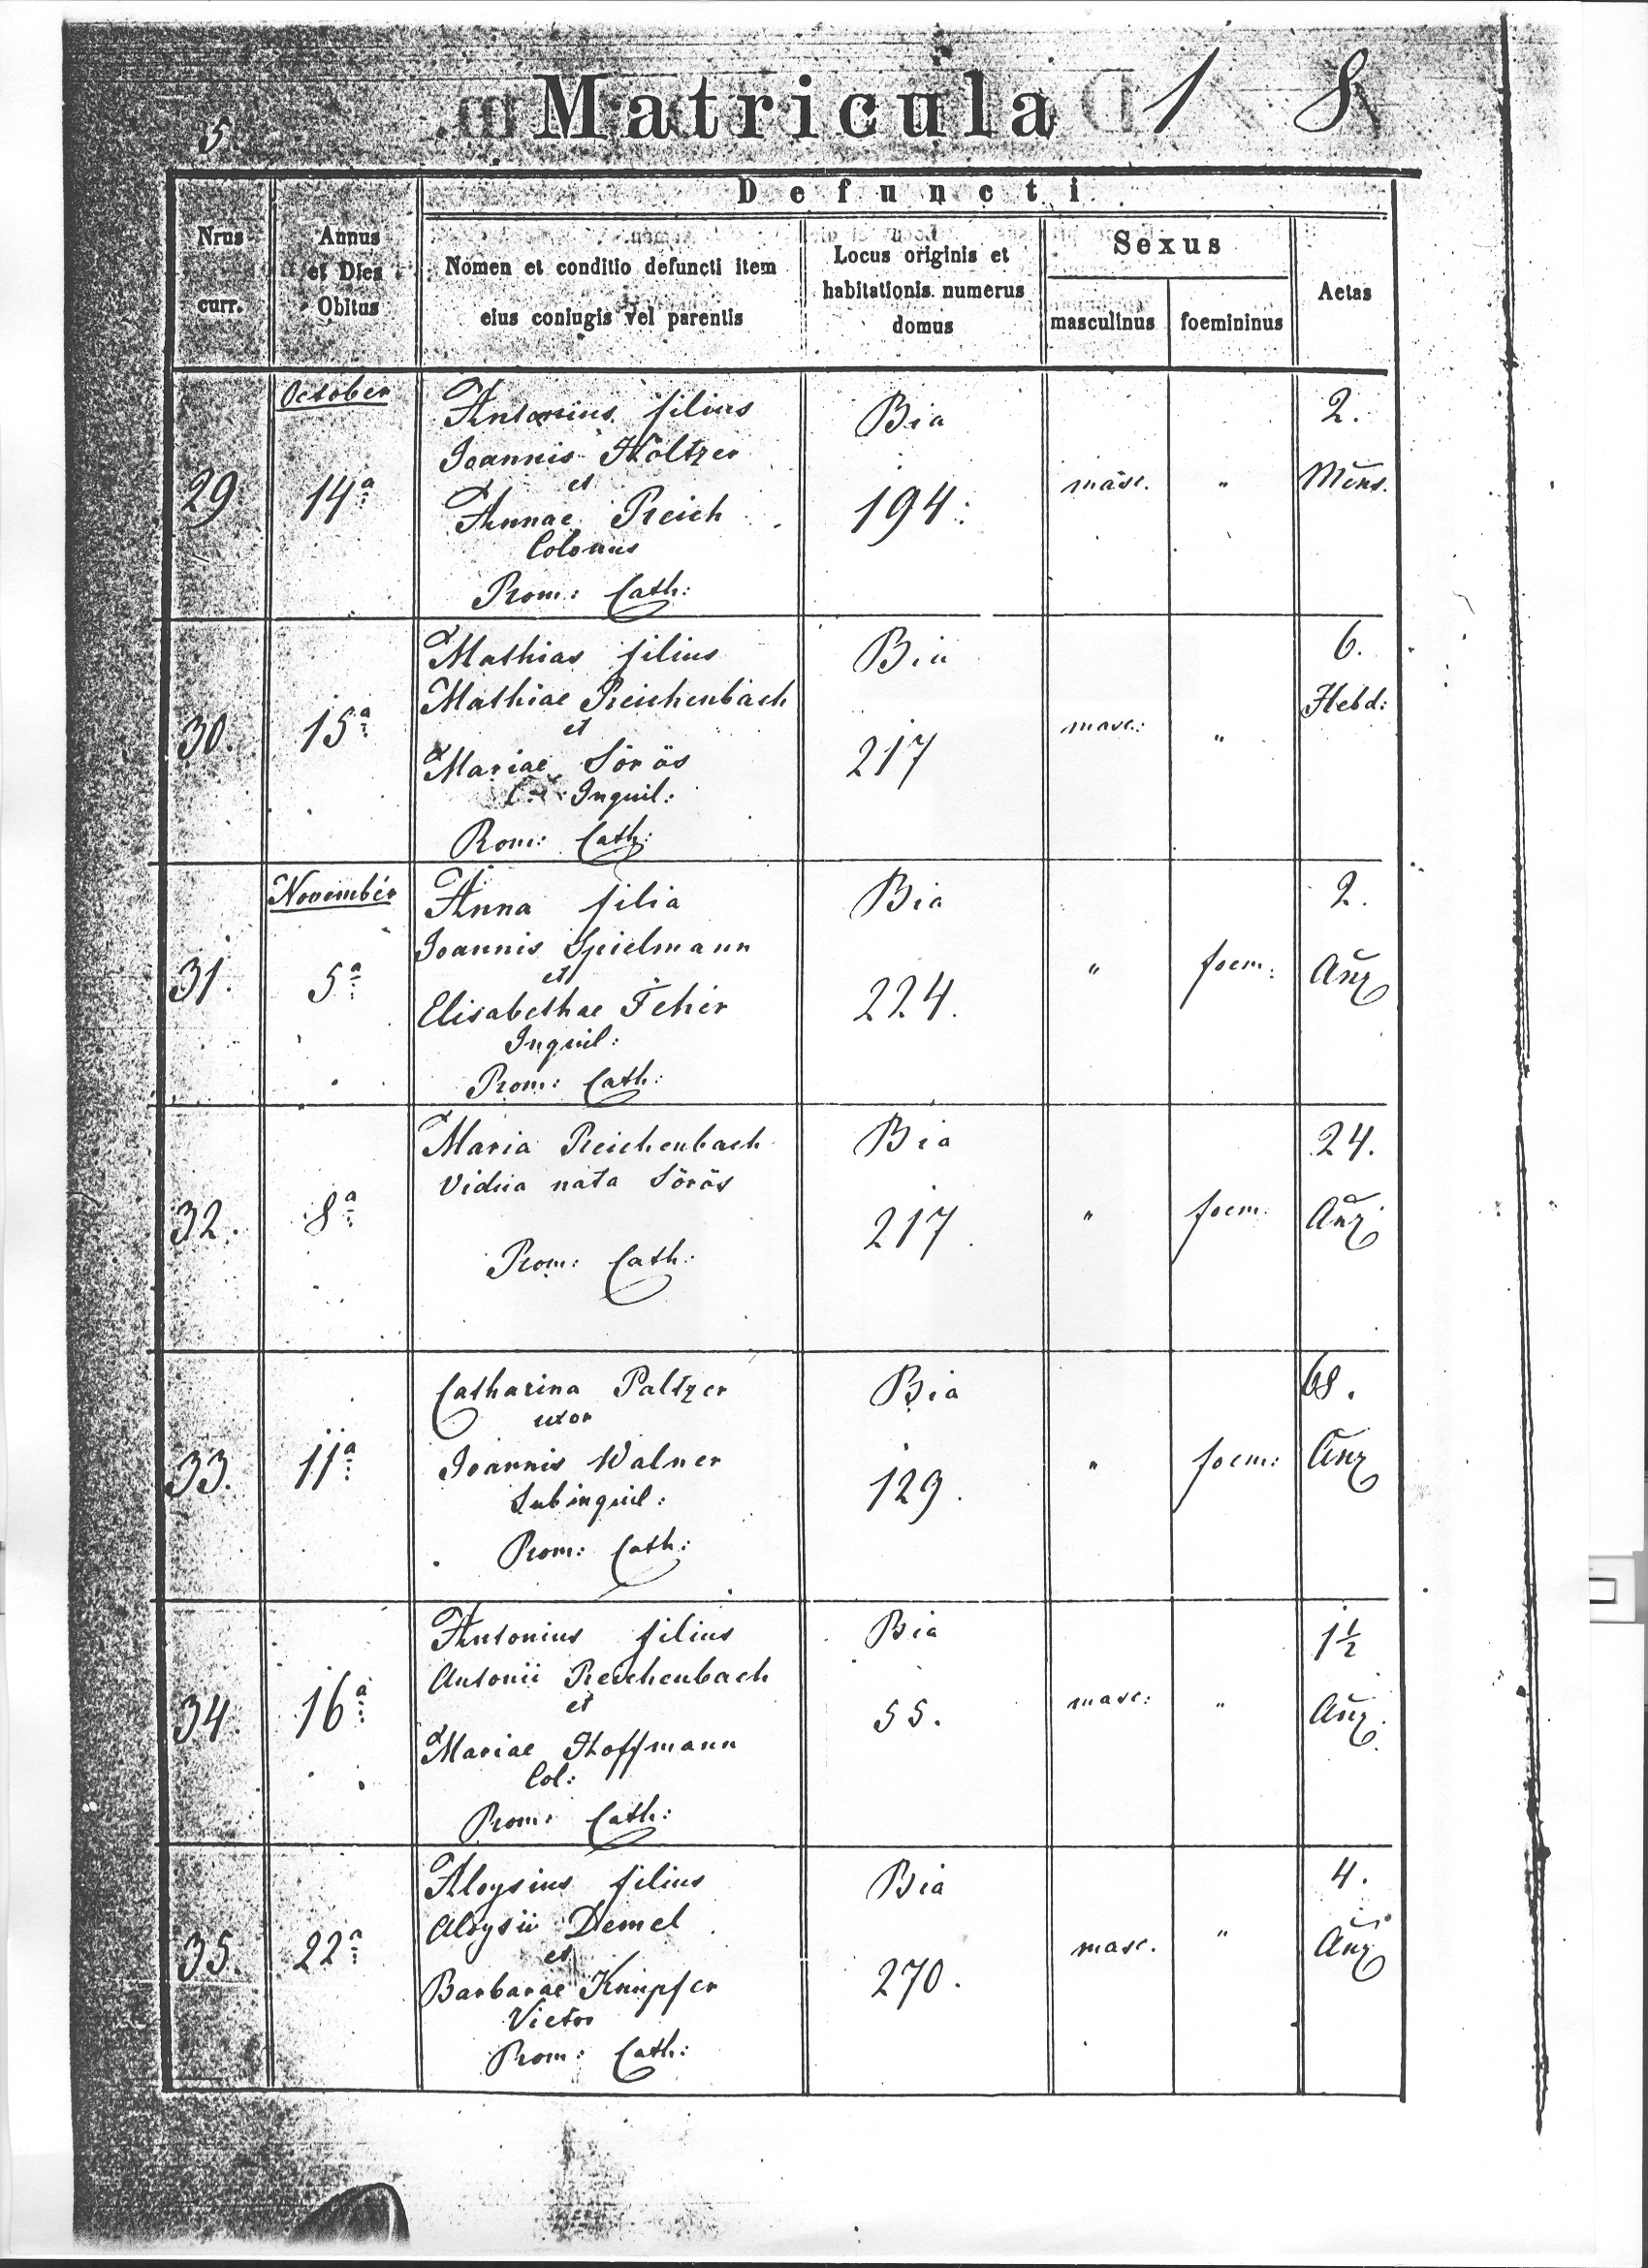 5.
Matricula 18
Defuncti
Nrus
curr.
Annus
et Dies
Obitus
Nomen et conditio defuncti item
eius coniugis vel parentis
Locus originis et
habitationis numerus
domus
Sexus
masculinus
foemininus
Aetas
October
29
14ª
Antonius filius
Joannis Höltzer
et
Annae Reich
Colonus
Rom: Cath:
Bia
194:
masc.
"
2.
Mens.
30.
15ª
Mathias filius
Mathiae Reichenbach
et
Mariae Sörös
Inquil:
Rom: Cath:
Bia
217
masc:
"
6.
Hebd:
November
31.
5ª
Anna filia
Joannis Spielmann
et
Elisabethae Fehér
Inquil:
Rom: Cath:
Bia
224.
"
foem:
2.
Ann
32.
8ª
Maria Reichenbach
Vidua nata Sörös
Rom: Cath:
Bia
217.
"
foem:
24.
Ann
33.
11ª
Catharina Paltzer
uxor
Joannis Walner
Subinquil:
Rom: Cath:
Bia
129.
"
foem:
68.
Ann
34
16ª
Antonius filius
Antonii Reichenbach
et
Mariae Hoffmann
Col:
Rom: Cath:
Bia
55.
masc:
"
1½
Ann.
35.
22ª
Aloysius filius
Aloysii Demel
et
Barbarae Knipfer
Victor
Rom: Cath:
Bia
270.
masc.
"
4.
Ann